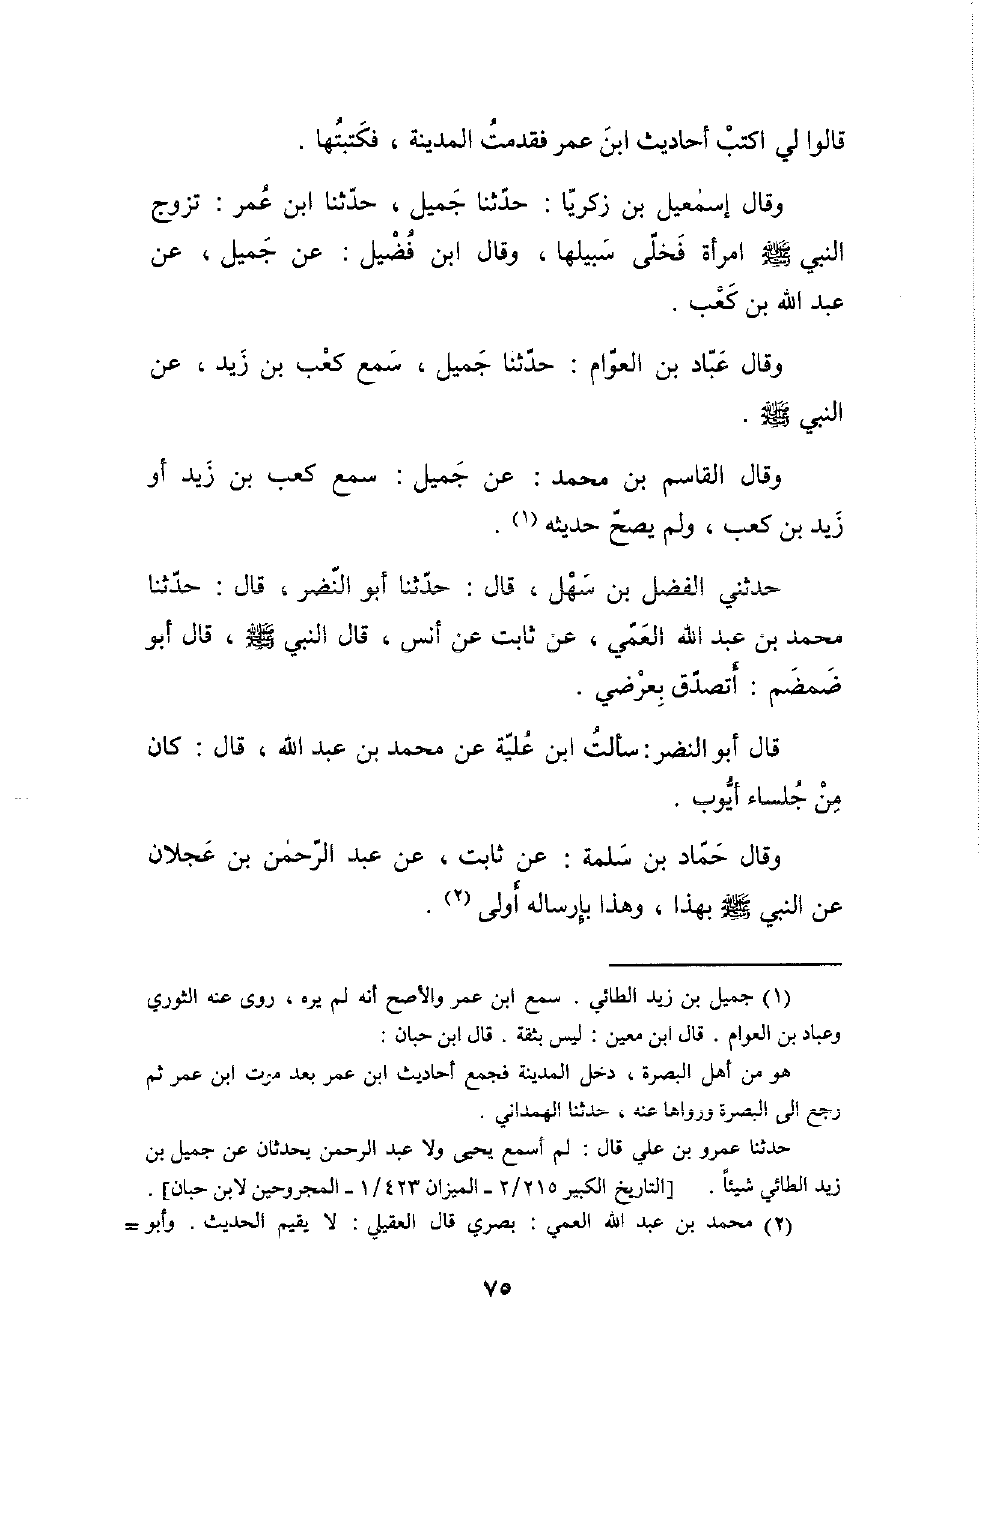 قالوا لي اكتبْ أحاديث ابنَ عمر فقدمتُ المدينة ، فكَتبتُها .
وقال إسمٰعيل بن زكريّا : حدّثنا جَميل ، حدّثنا ابن عُمر : تزوج
النبي ﷺ امرأة فَخلّى سَبيلها ، وقال ابن فُضْيل : عن جَميل ، عن
عبد الله بن كَعْب .
وقال عَبّاد بن العوّام : حدّثنا جَميل ، سَمع كعْب بن زَيد ، عن
النبي ﷺ .
وقال القاسم بن محمد : عن جَميل : سمع كعب بن زَيد أو
زَيد بن كعب ، ولم يصحّ حديثه (١) .
حدثني الفضل بن سَهْل ، قال : حدّثنا أبو النّضر ، قال : حدّثنا
محمد بن عبد الله العَمّي ، عن ثابت عن أنس ، قال النبي ﷺ ، قال أبو
ضَمضَم : أَتصدّق بِعرْضي .
قال أبو النضر : سألتُ ابن عُليّة عن محمد بن عبد الله ، قال : كان
مِنْ جُلساء أيُّوب .
وقال حَمّاد بن سَلمة : عن ثابت ، عن عبد الرّحمٰن بن عَجلان
عن النبي ﷺ بهذا ، وهذا بإرساله أَولى (٢) .
(١) جميل بن زيد الطائي . سمع ابن عمر والأصح أنه لم يره ، روى عنه الثوري
وعباد بن العوام . قال ابن معين : ليس بثقة . قال ابن حبان :
هو من أهل البصرة ، دخل المدينة فجمع أحاديث ابن عمر بعد موت ابن عمر ثم
رجع الى البصرة ورواها عنه ، حدثنا الهمداني .
حدثنا عمرو بن علي قال : لم أسمع يحيى ولا عبد الرحمن يحدثان عن جميل بن
زيد الطائي شيئاً . [التاريخ الكبير ٢/٢١٥ ـ الميزان ١/٤٢٣ ـ المجروحين لابن حبان] .
(٢) محمد بن عبد الله العمي : بصري قال العقيلي : لا يقيم الحديث . وأبو =
٧٥